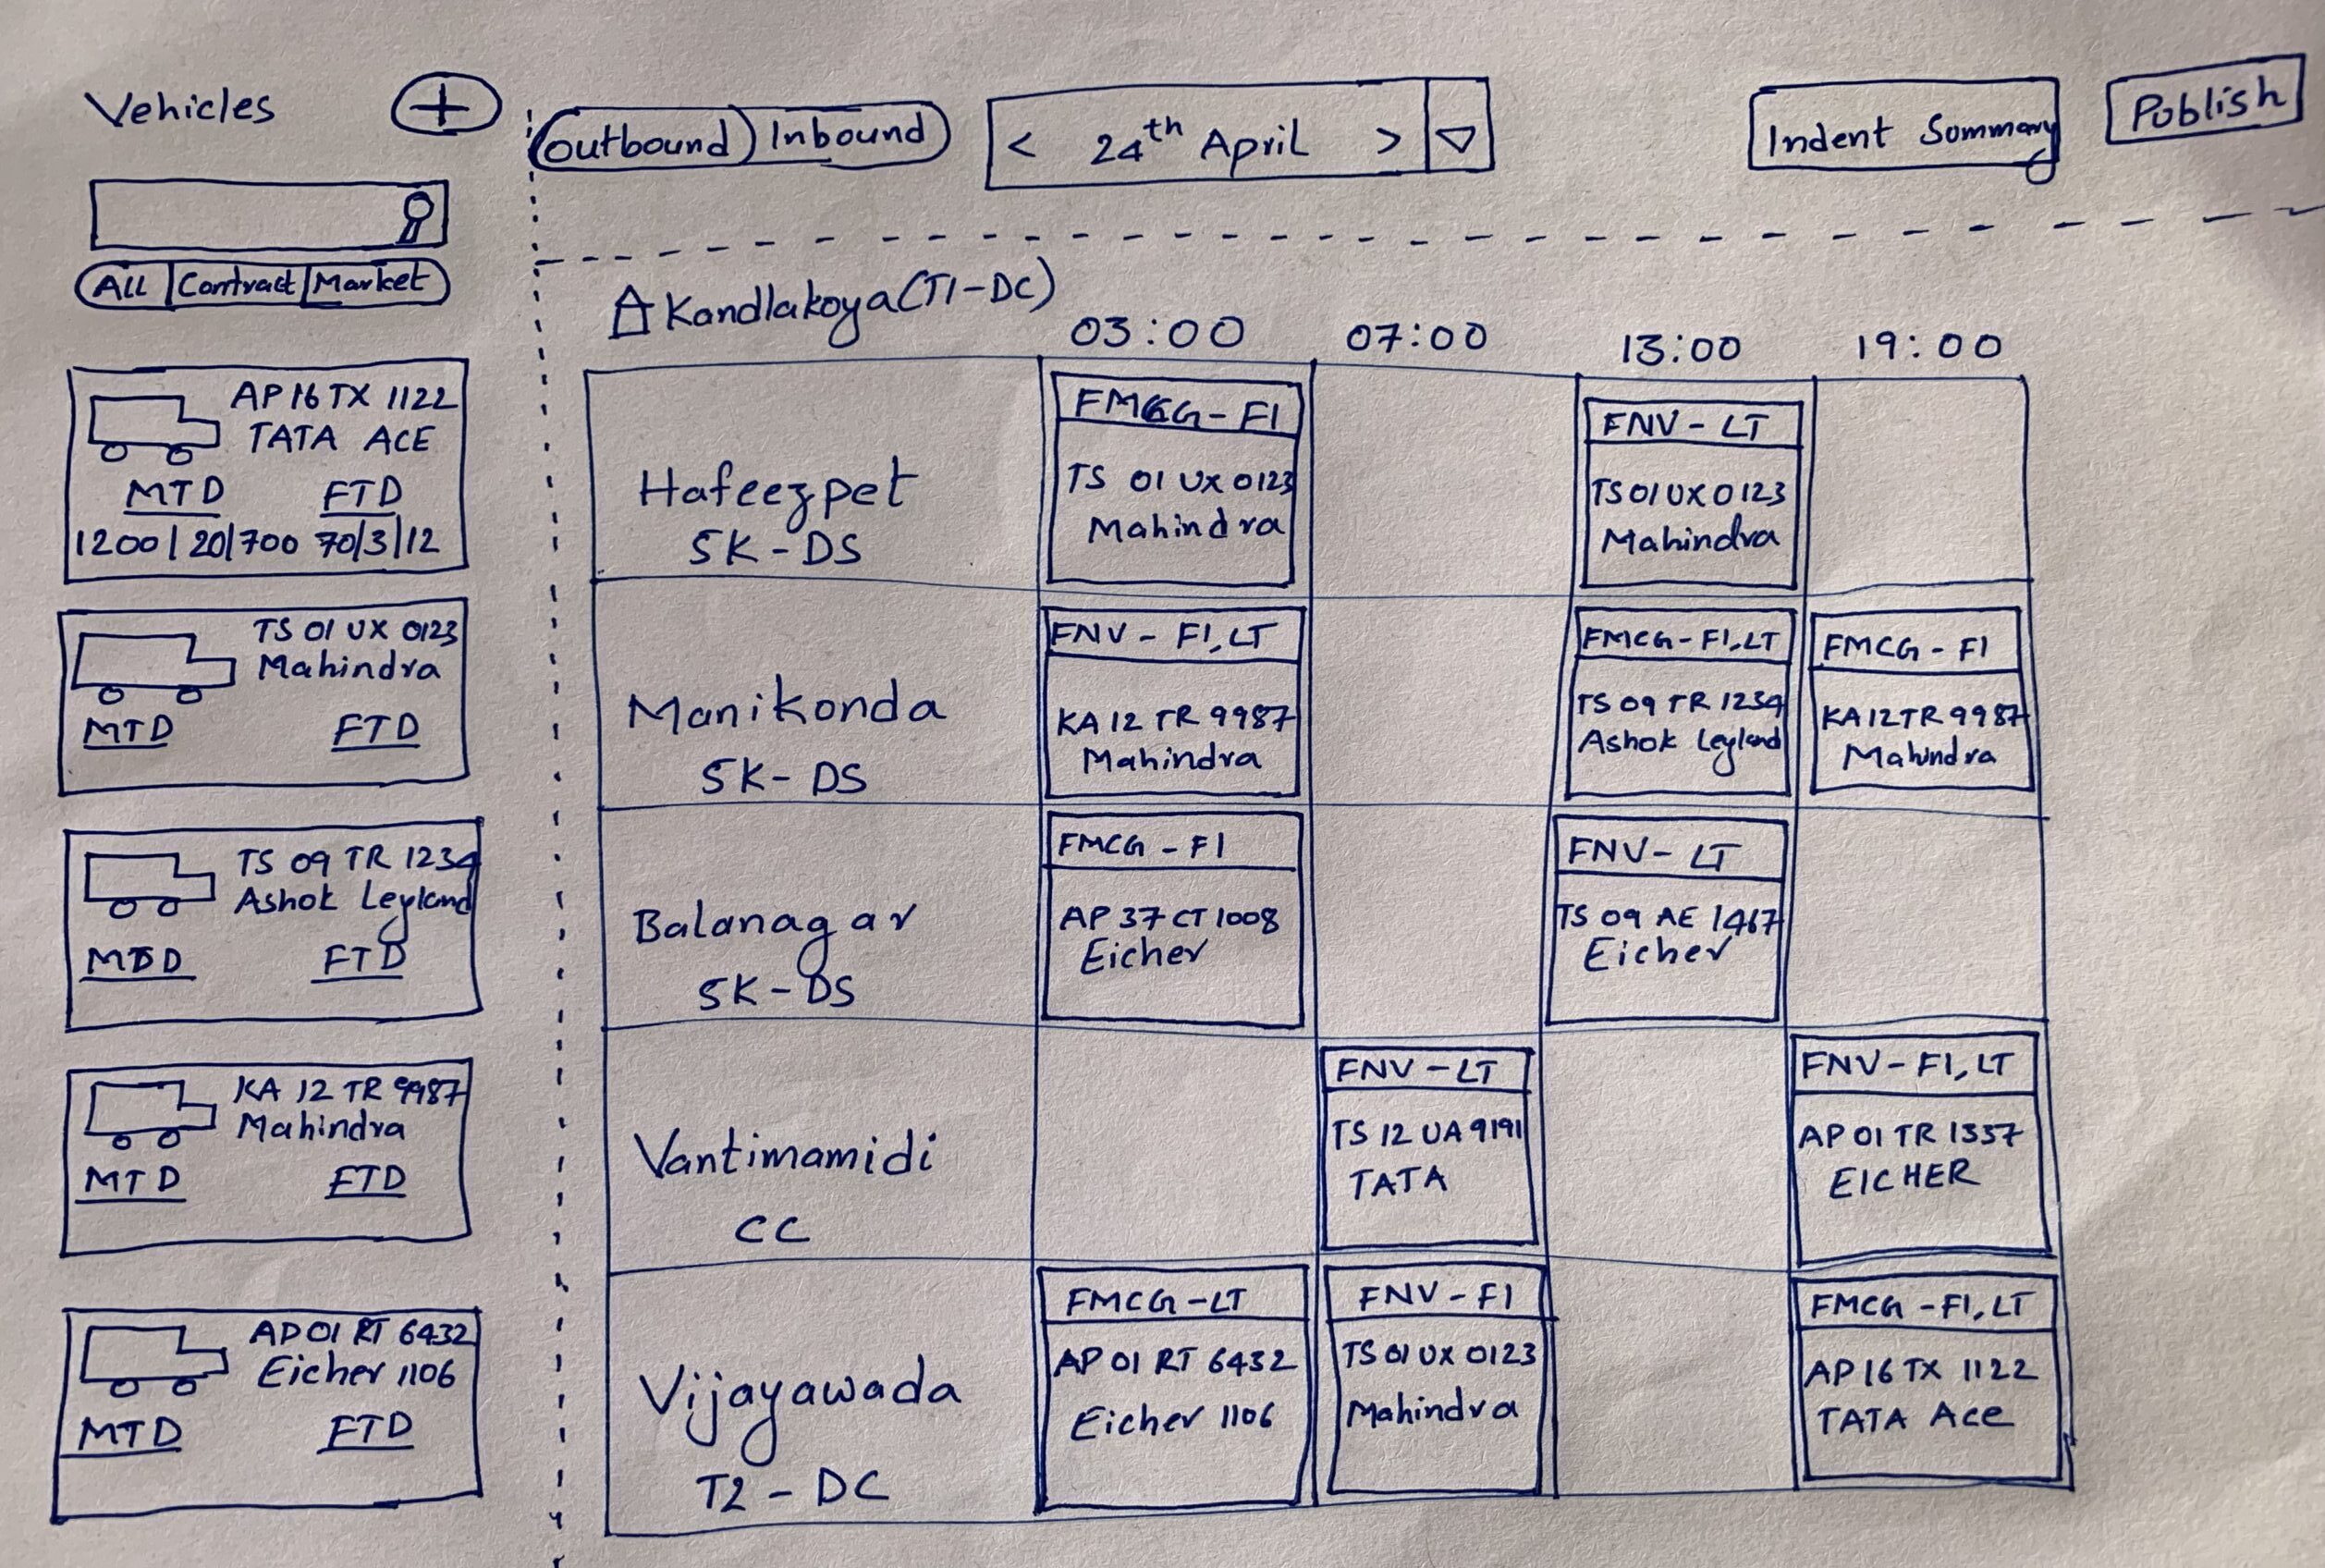 Vehicles
+
Outbound Inbound
< 24th April >
Indent Summary
Publish
All Contract Market
AP 16 TX 1122
TATA ACE
MTD FTD
1200 | 20/700 70/3/12
TS 01 UX 0123
Mahindra
MTD FTD
TS 09 TR 1234
Ashok Leyland
MTD FTD
KA 12 TR 9987
Mahindra
MTD FTD
AP 01 RT 6432
Eicher 1106
MTD FTD
Kandlakoya (T1-DC)
03:00 07:00 13:00 19:00
Hafeezpet
SK-DS
FMCG - F1
TS 01 UX 0123
Mahindra
FNV - LT
TS 01 UX 0123
Mahindra
Manikonda
SK-DS
FNV - F1, LT
KA 12 TR 9987
Mahindra
FMCG - F1, LT
TS 09 TR 1234
Ashok Leyland
FMCG - F1
KA 12 TR 9987
Mahindra
Balanagar
SK-DS
FMCG - F1
AP 37 CT 1008
Eicher
FNV - LT
TS 09 AE 1467
Eicher
Vantimamidi
CC
FNV - LT
TS 12 UA 9191
TATA
FNV - F1, LT
AP 01 TR 1337
EICHER
Vijayawada
T2 - DC
FMCG - LT
AP 01 RT 6432
Eicher 1106
FNV - F1
TS 01 UX 0123
Mahindra
FMCG - F1, LT
AP 16 TX 1122
TATA Ace